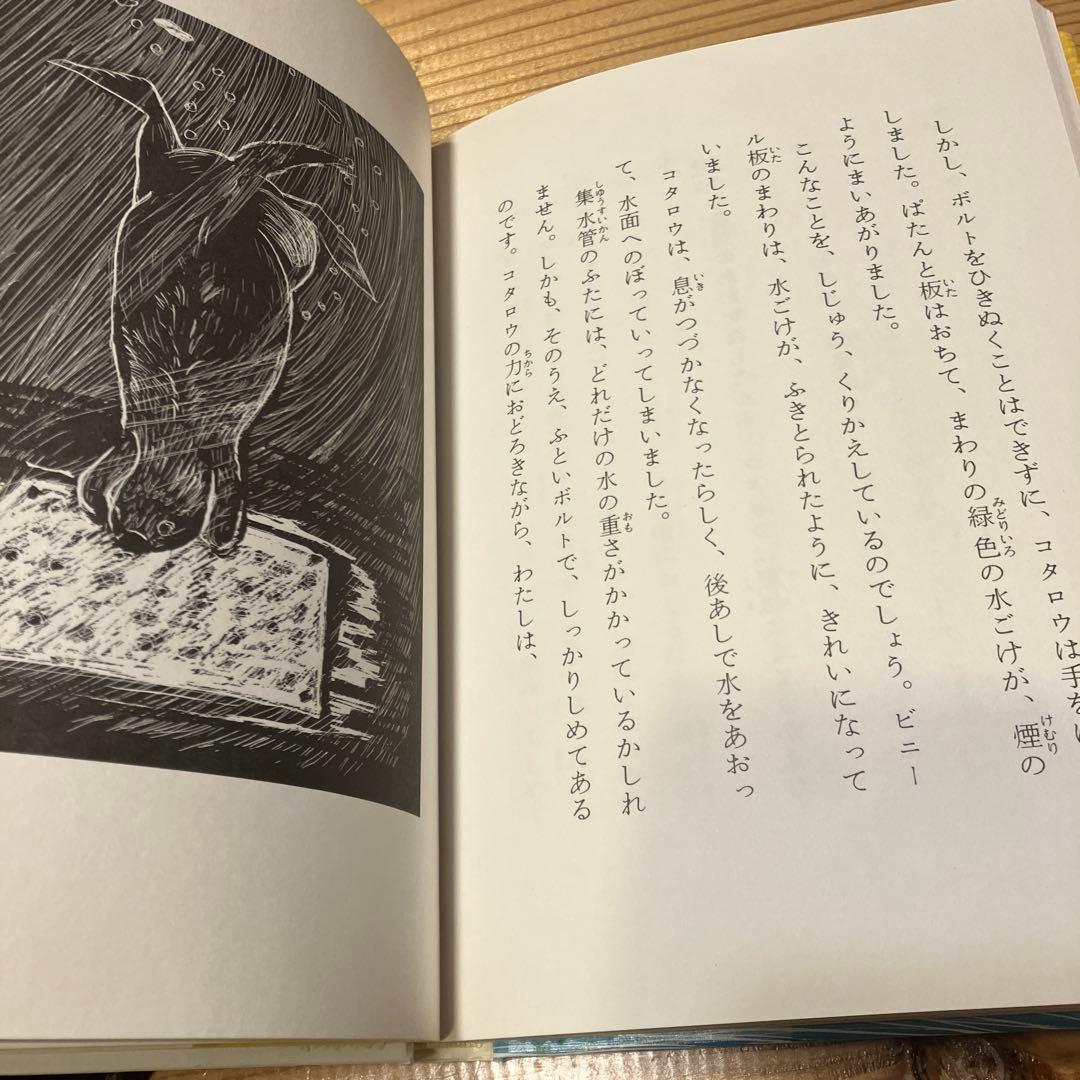 しかし、ボルトをひきぬくことはできずに、コタロウは手を
しました。ぱたんと板はおちて、まわりの緑色の水ごけが、煙の
ようにまいあがりました。
こんなことを、しじゅう、くりかえしているのでしょう。ビニー
ル板のまわりは、水ごけが、ふきとられたように、きれいになって
いました。
コタロウは、息がつづかなくなったらしく、後あしで水をあおっ
て、水面へのぼっていってしまいました。
集水管のふたには、どれだけの水の重さがかかっているかしれ
ません。しかも、そのうえ、ふといボルトで、しっかりしめてある
のです。コタロウの力におどろきながら、わたしは、